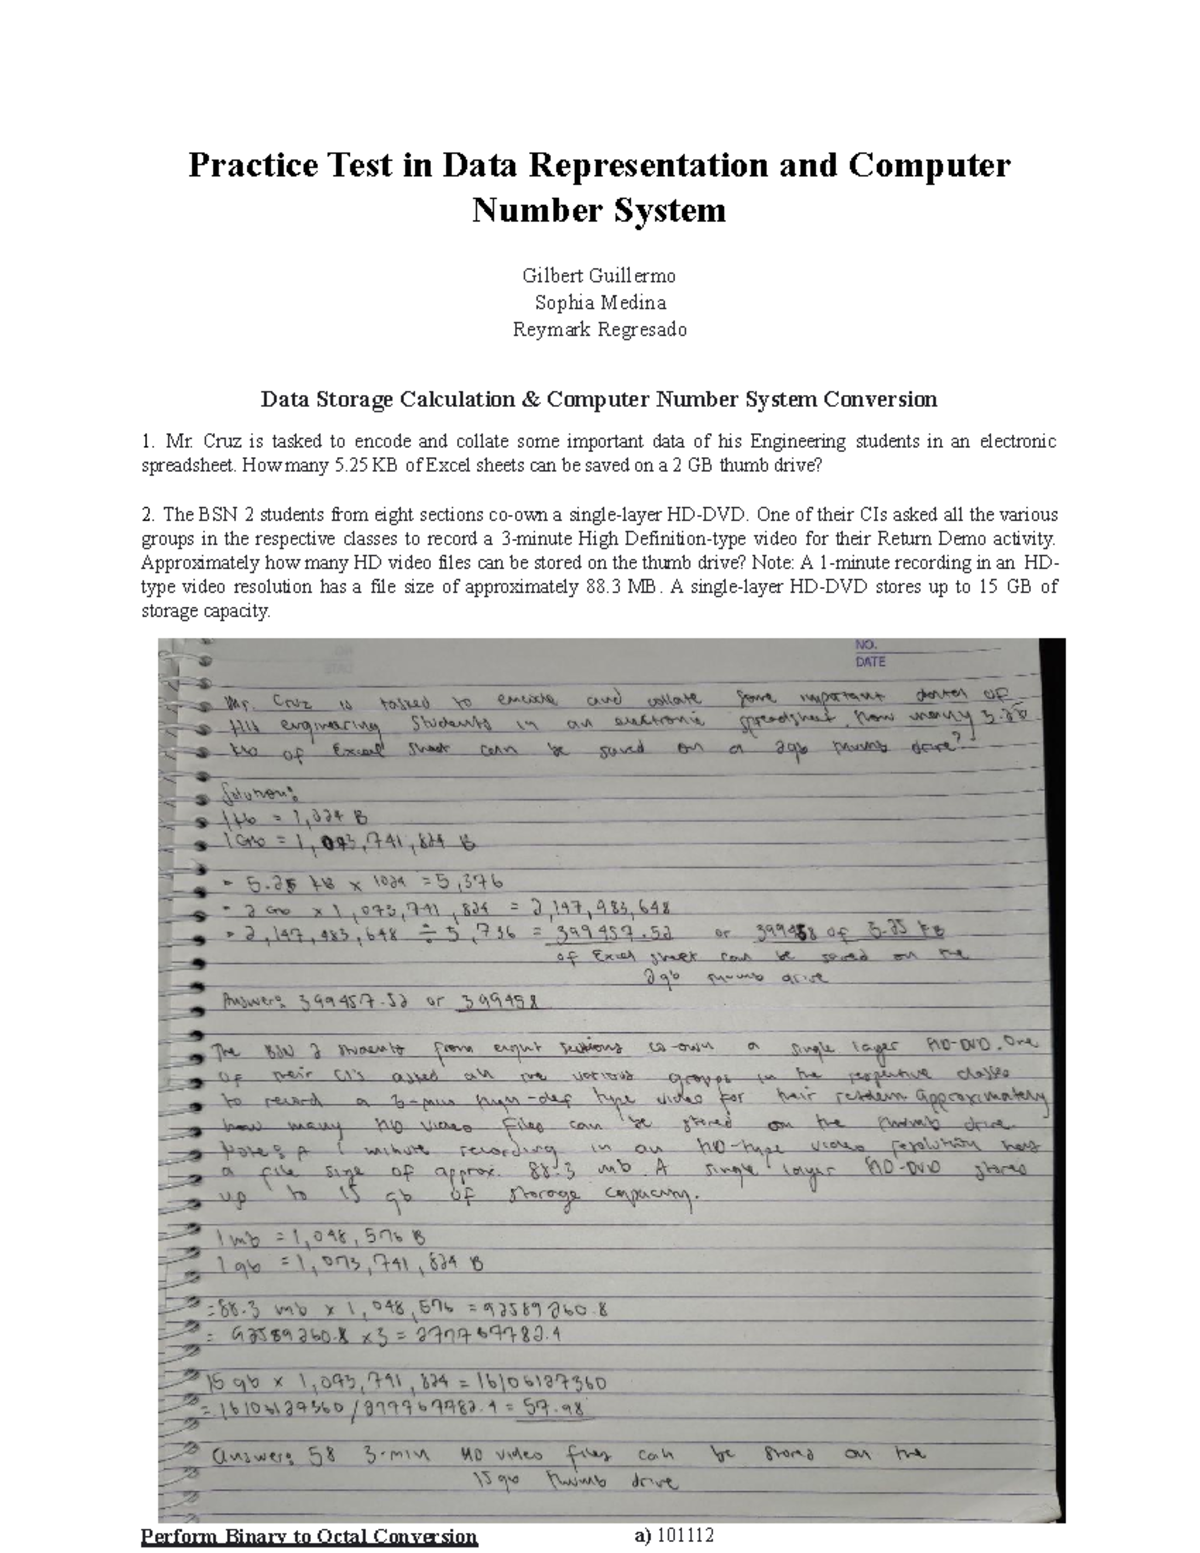 Practice Test in Data Representation and Computer
Number System
Gilbert Guillermo
Sophia Medina
Reymark Regresado
Data Storage Calculation & Computer Number System Conversion
1. Mr. Cruz is tasked to encode and collate some important data of his Engineering students in an electronic
spreadsheet. How many 5.25 KB of Excel sheets can be saved on a 2 GB thumb drive?
2. The BSN 2 students from eight sections co-own a single-layer HD-DVD. One of their CIs asked all the various
groups in the respective classes to record a 3-minute High Definition-type video for their Return Demo activity.
Approximately how many HD video files can be stored on the thumb drive? Note: A 1-minute recording in an HD-
type video resolution has a file size of approximately 88.3 MB. A single-layer HD-DVD stores up to 15 GB of
storage capacity.
NO.
DATE
Mr. Cruz is tasked to encode and collate some important of
engineering students in an electronic spreadsheet. How many
of Excel sheet can be saved on a 2gb thumb drive?
Solution:
= 1,024 B
= 1,073,741,824 B
= 5.25 KB x 1024 = 5,376
= 2 x 1,073,741,824 = 2,147,983,648
= 2,147,483,648 ÷ 5,736 = 399457.52 or 399458 of 5.25 KB
of Excel sheet can be saved on the
2gb thumb drive
Answer: 399457.52 or 399458
The BSN 2 students from eight sections co-own a single layer HD-DVD. One
of their CI's asked all the various groups in the respective classes
to record a 3-min high-def type video for their retdem approximately
how many HD video files can be stored on the thumb drive.
Note: A 1 minute recording in an HD-type video resolution has
a file size of approx. 88.3 mb. A single layer HD-DVD stores
up to 15 gb of storage capacity.
1 mb = 1,048,576 B
1 gb = 1,073,741,824 B
= 88.3 mb x 1,048,576 = 92589260.8
= 92589260.8 x 3 = 277767782.4
15 gb x 1,073,741,824 = 16106127360
= 16106127360 / 277767782.4 = 57.98
Answer: 58 3-min HD video files can be stored on the
15gb thumb drive
Perform Binary to Octal Conversion a) 101112